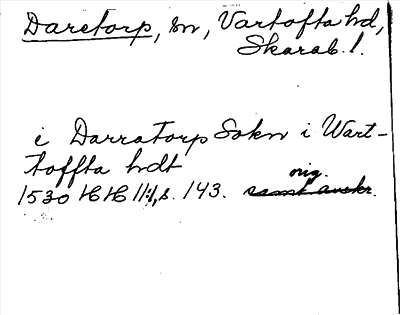 Daretorp, sn, Vartofta hd,
Skarab. l.
i Darratorp Sokn i Wart-
toffta hdt
orig.
1530 HH 11:1, s. 143. samt avskr.